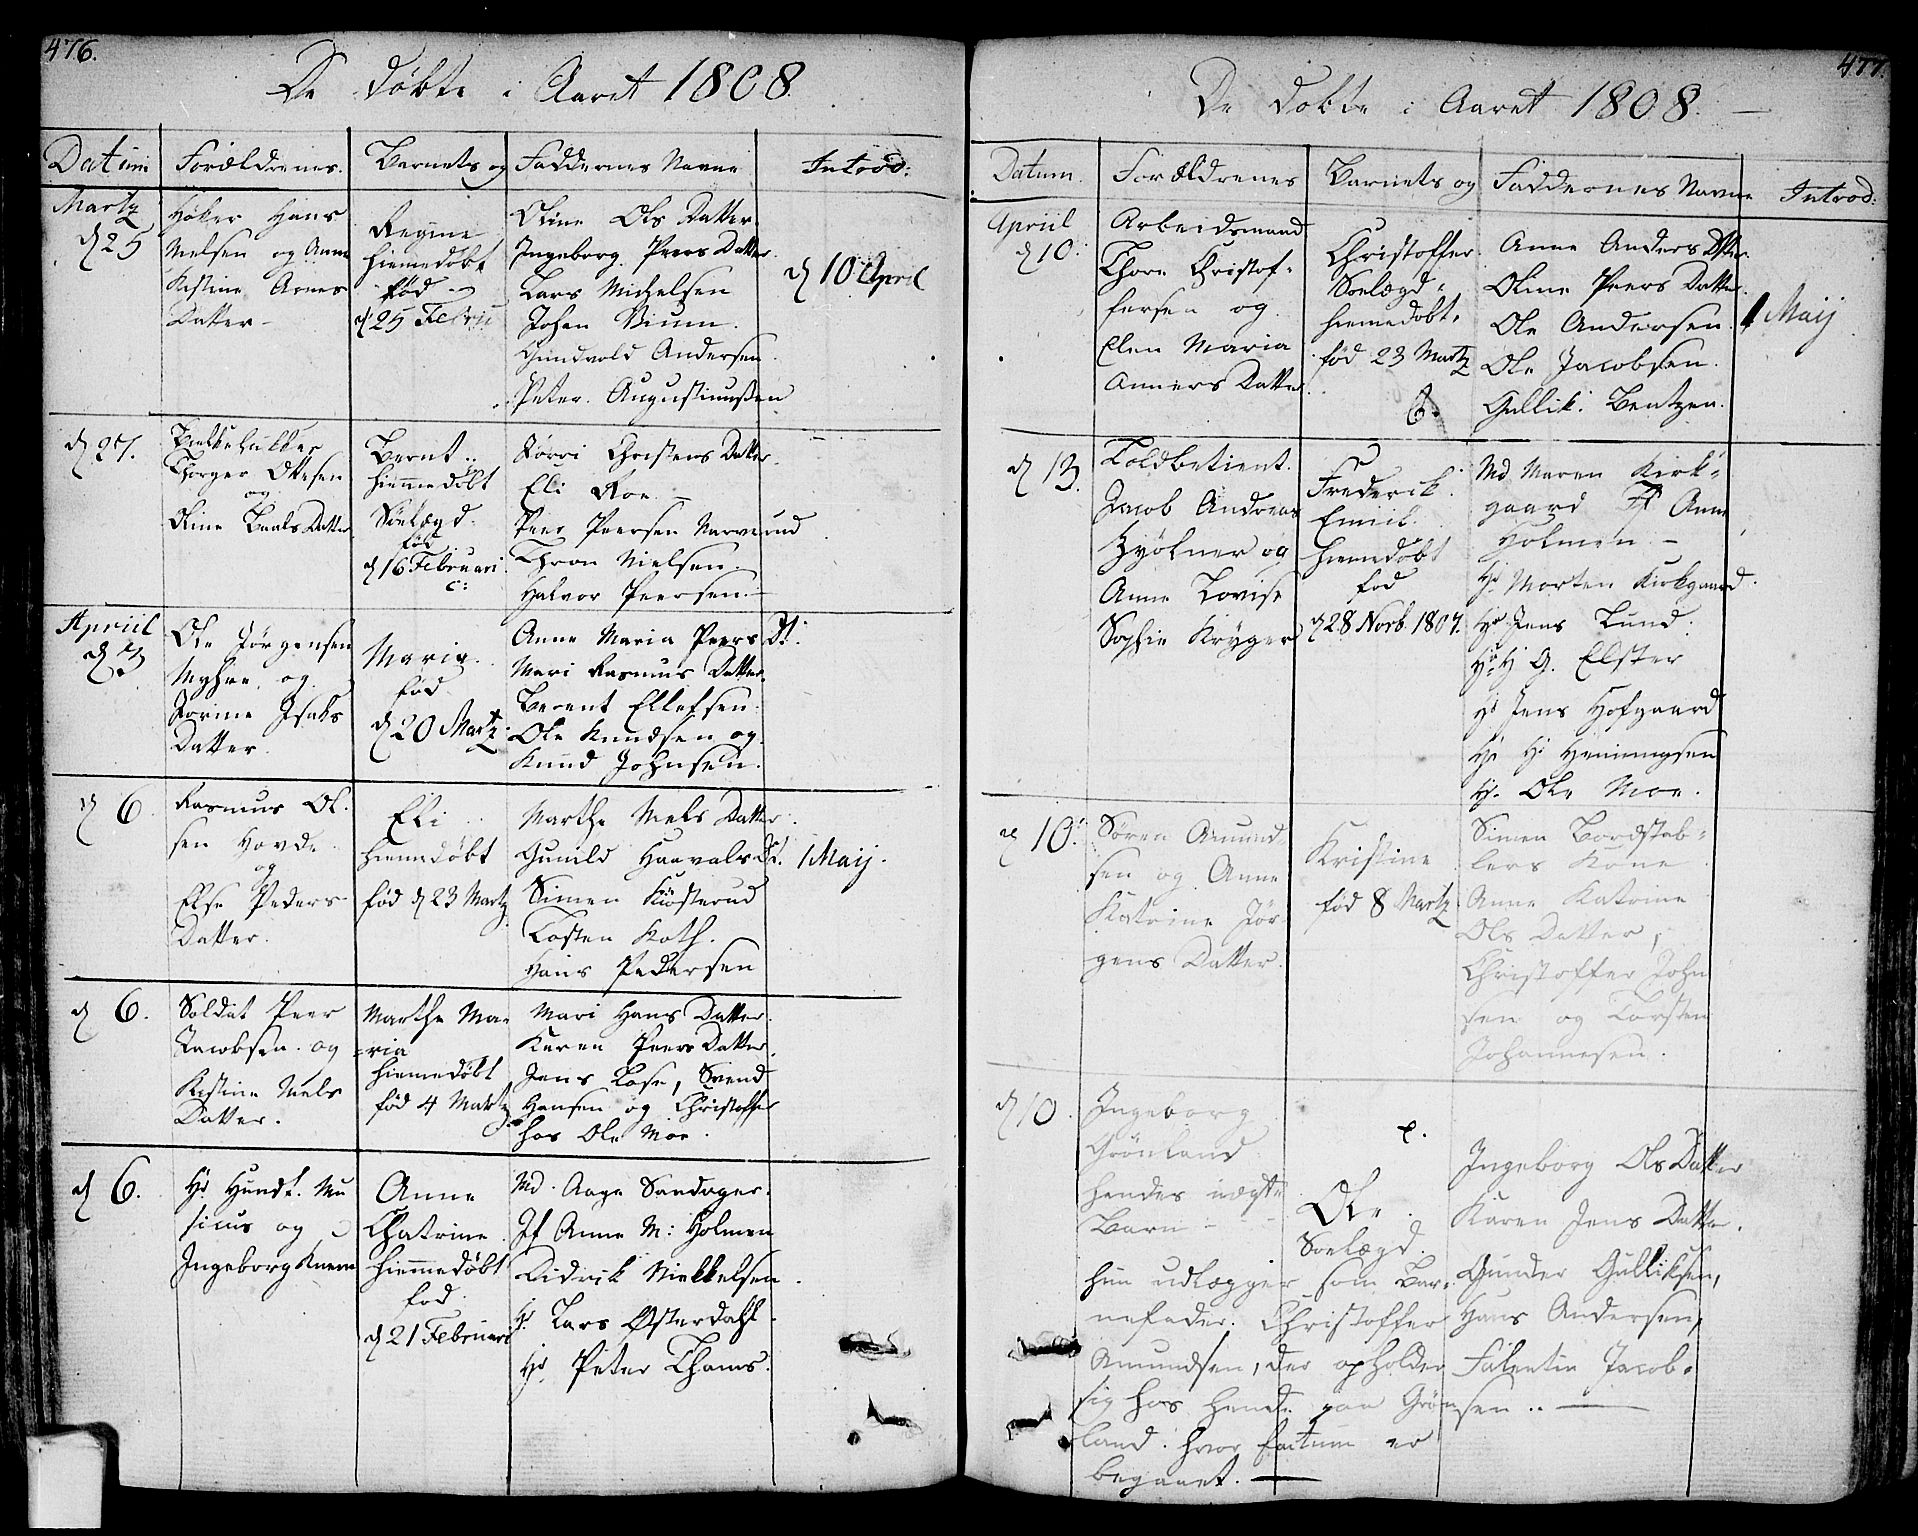 476.
De døbte i Aaret 1808.
Datum Forældrenes. Barnets og Faddernes Navne Introd:
Martz
d 25
Høker Hans
Nielsen og Anne
Kistine Arnes
Datter
Regine
hiemedøbt
fød
d 25 Febru
Oline Ols Datter
Ingeborg Peers Datter
Lars Michelsen
Johan Bium.
Gundvold Andersen.
Peter Augustinussen
d 10 April
d 27.
Thorger Olsen
og
Oline Datter
Bernt
hiemmedøbt
Søelægd.
fød
d 16 Februari
c:
Christens Datter.
Eli Roe
Peer Peersen Narverud
Thron Nielsen.
Halvor Peersen.
Apriil
d 3
Ole Jørgensen
Myhre og
Isaks
Datter.
Maria.
fød
d 20 Martz
Anne Maria Peers Dt.
Mari Rasmus Datter.
Berent Ellefsen.
Ole Knudsen og
Knud Johnsen.
d 6
Rasmus Ol.
sen Hovde
og
Else Peders
Datter.
Eli
hiemmedøbt
fød d 23 Martz
Marthe Niels Datter.
Gunild Haavals Dt.
Simen Kiøsterud
Torsten Koth.
Hans Pedersen
1 Maij.
d 6.
Soldat Peer
Jacobsen og
Kistine Niels
Datter.
Marthe Ma=
=ria
hiemedøbt
fød 4 Martz
Mari Hans Datter.
Karen Peers Datter.
Jens Svend
Hansen og Christoffer
hos Ole Moe.
d 6.
Hr Hundt. Mu
sicus og
Ingeborg
Anne
Chatrine
hiemmedøbt
fød
d 21 Februari
Md. Aage Sandager.
Jf Anne M: Holmen
Didrik Nikkelsen.
Hr. Lars Østerdahl.
Hr. Peter Thams.
477.
De døbte i Aaret 1808.
Datum. Forældrenes Barnets og Faddernes Navne Introd:
Apriil
d 10.
Arbeidsmand
Thore Christof=
fersen og
Elen Maria
Anners Datter
Christoffer
Soelægd.
hiemedøbt.
fød 23 Martz
Anne Anders Dtter
Oline Peers Datter.
Ole Andersen.
Ole Jacobsen.
Gullik. Bentzen.
1 Maij
d 13.
Toldbetient.
Jacob Andreas
og
Anne Lovise
Sophie Krüger
Frederik.
Emiil.
hiemedøbt
fød
d 28 Novb. 1807.
Md Maren Kirk=
gaard Jf Anne
Holmen
Hr. Morten Kirkgaard.
Hr Jens Lund.
Hr. H G. Elster
Hr Jens Hofgaard
Hr H. Henningsen
Hr. Ole Moe.
d 10.
Søren Amund=
sen og Anne
Katrine Jør
gens Datter.
Kristine
fød 8 Martz
Simen Bordstab=
lers Kone
Anne Katrine
Ols Datter,
Christoffer John
sen og Torsten
Johannesen.
d 10.
Ingeborg
Grønland
hendes uægte
Barn
hun udlægger som Bar=
nefader. Christoffer
Amundsen, der opholder
sig hos hende paa Grøn
land. hvor factum er
begaaet.
Ole
Soelægd.
Ingeborg Ols Datter
Karen Jens Datter.
Gunder Gulliksen,
Hans Andersen,
Falentin Jacob=
sen